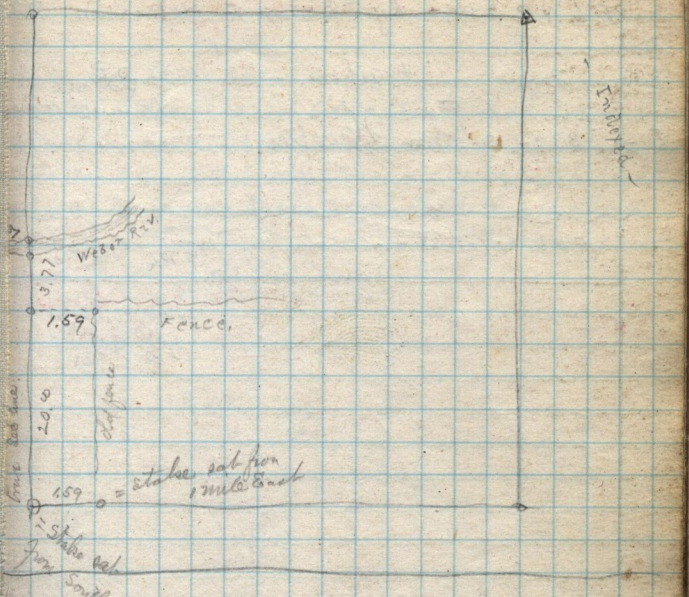 - Indexed -
Weber Riv.
3.77
1.59
Fence.
20.8
Old fence
1.59
= Stake set from
1 mile East
= Stake set
from South